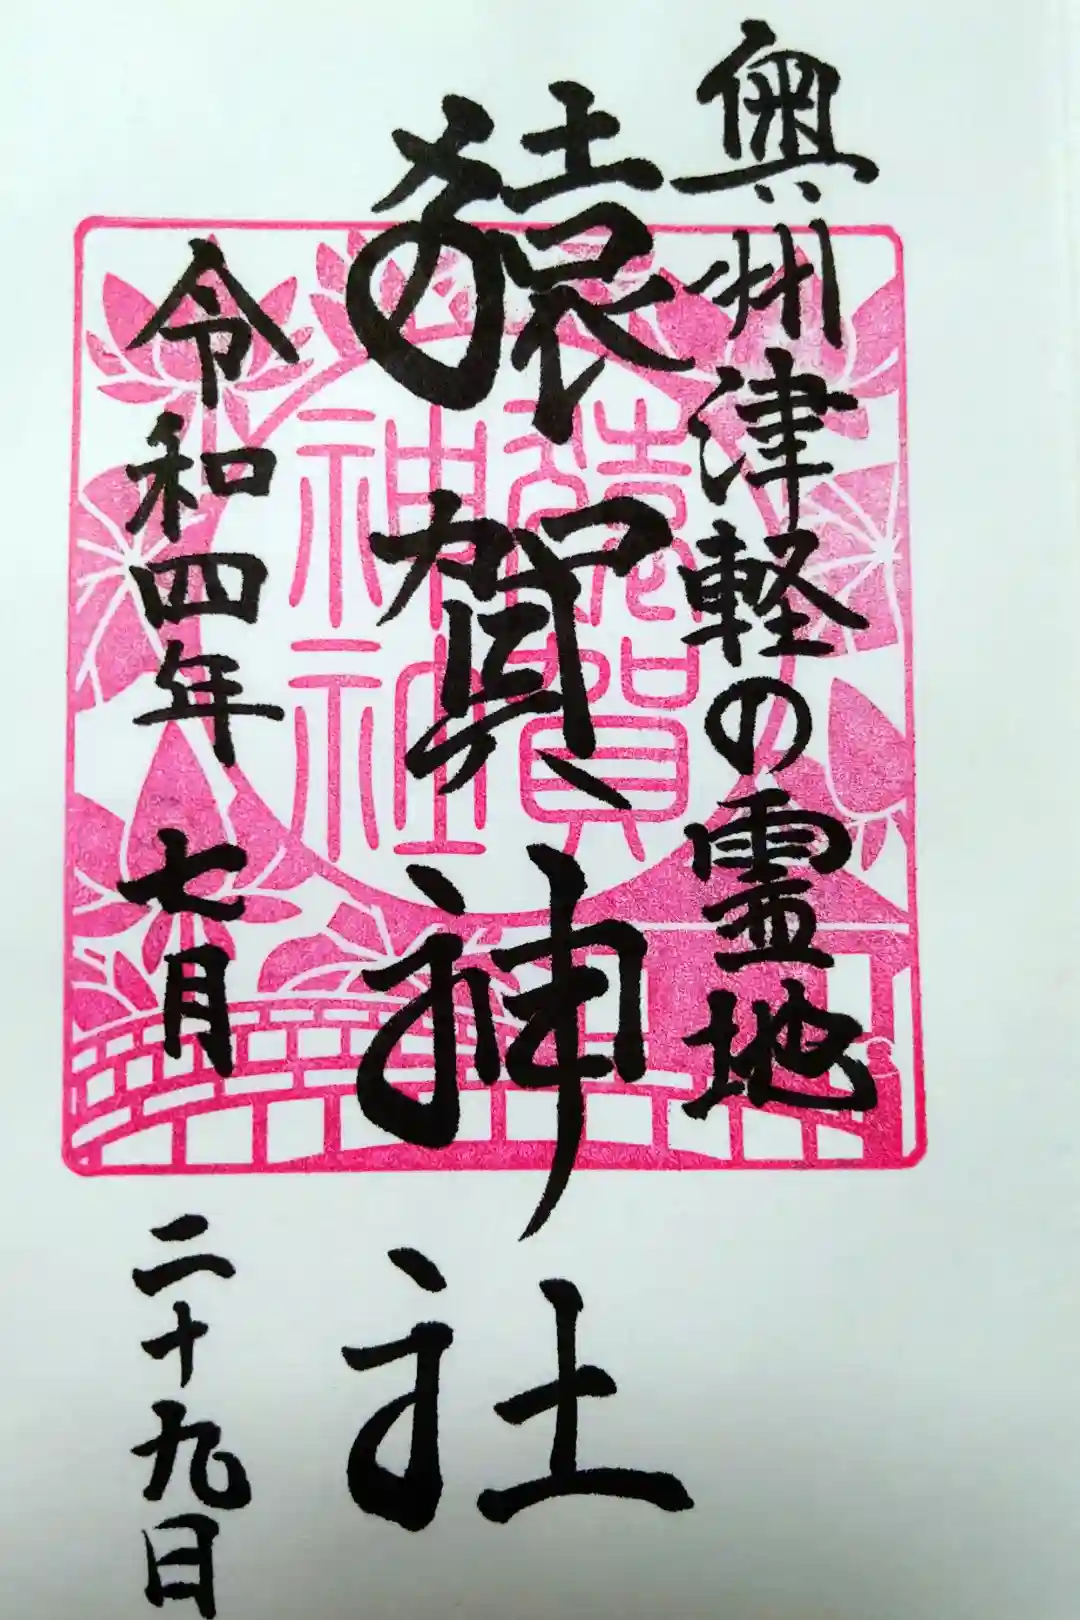 奥州津軽の霊地
猿賀神社
猿賀
神社
令和四年七月二十九日